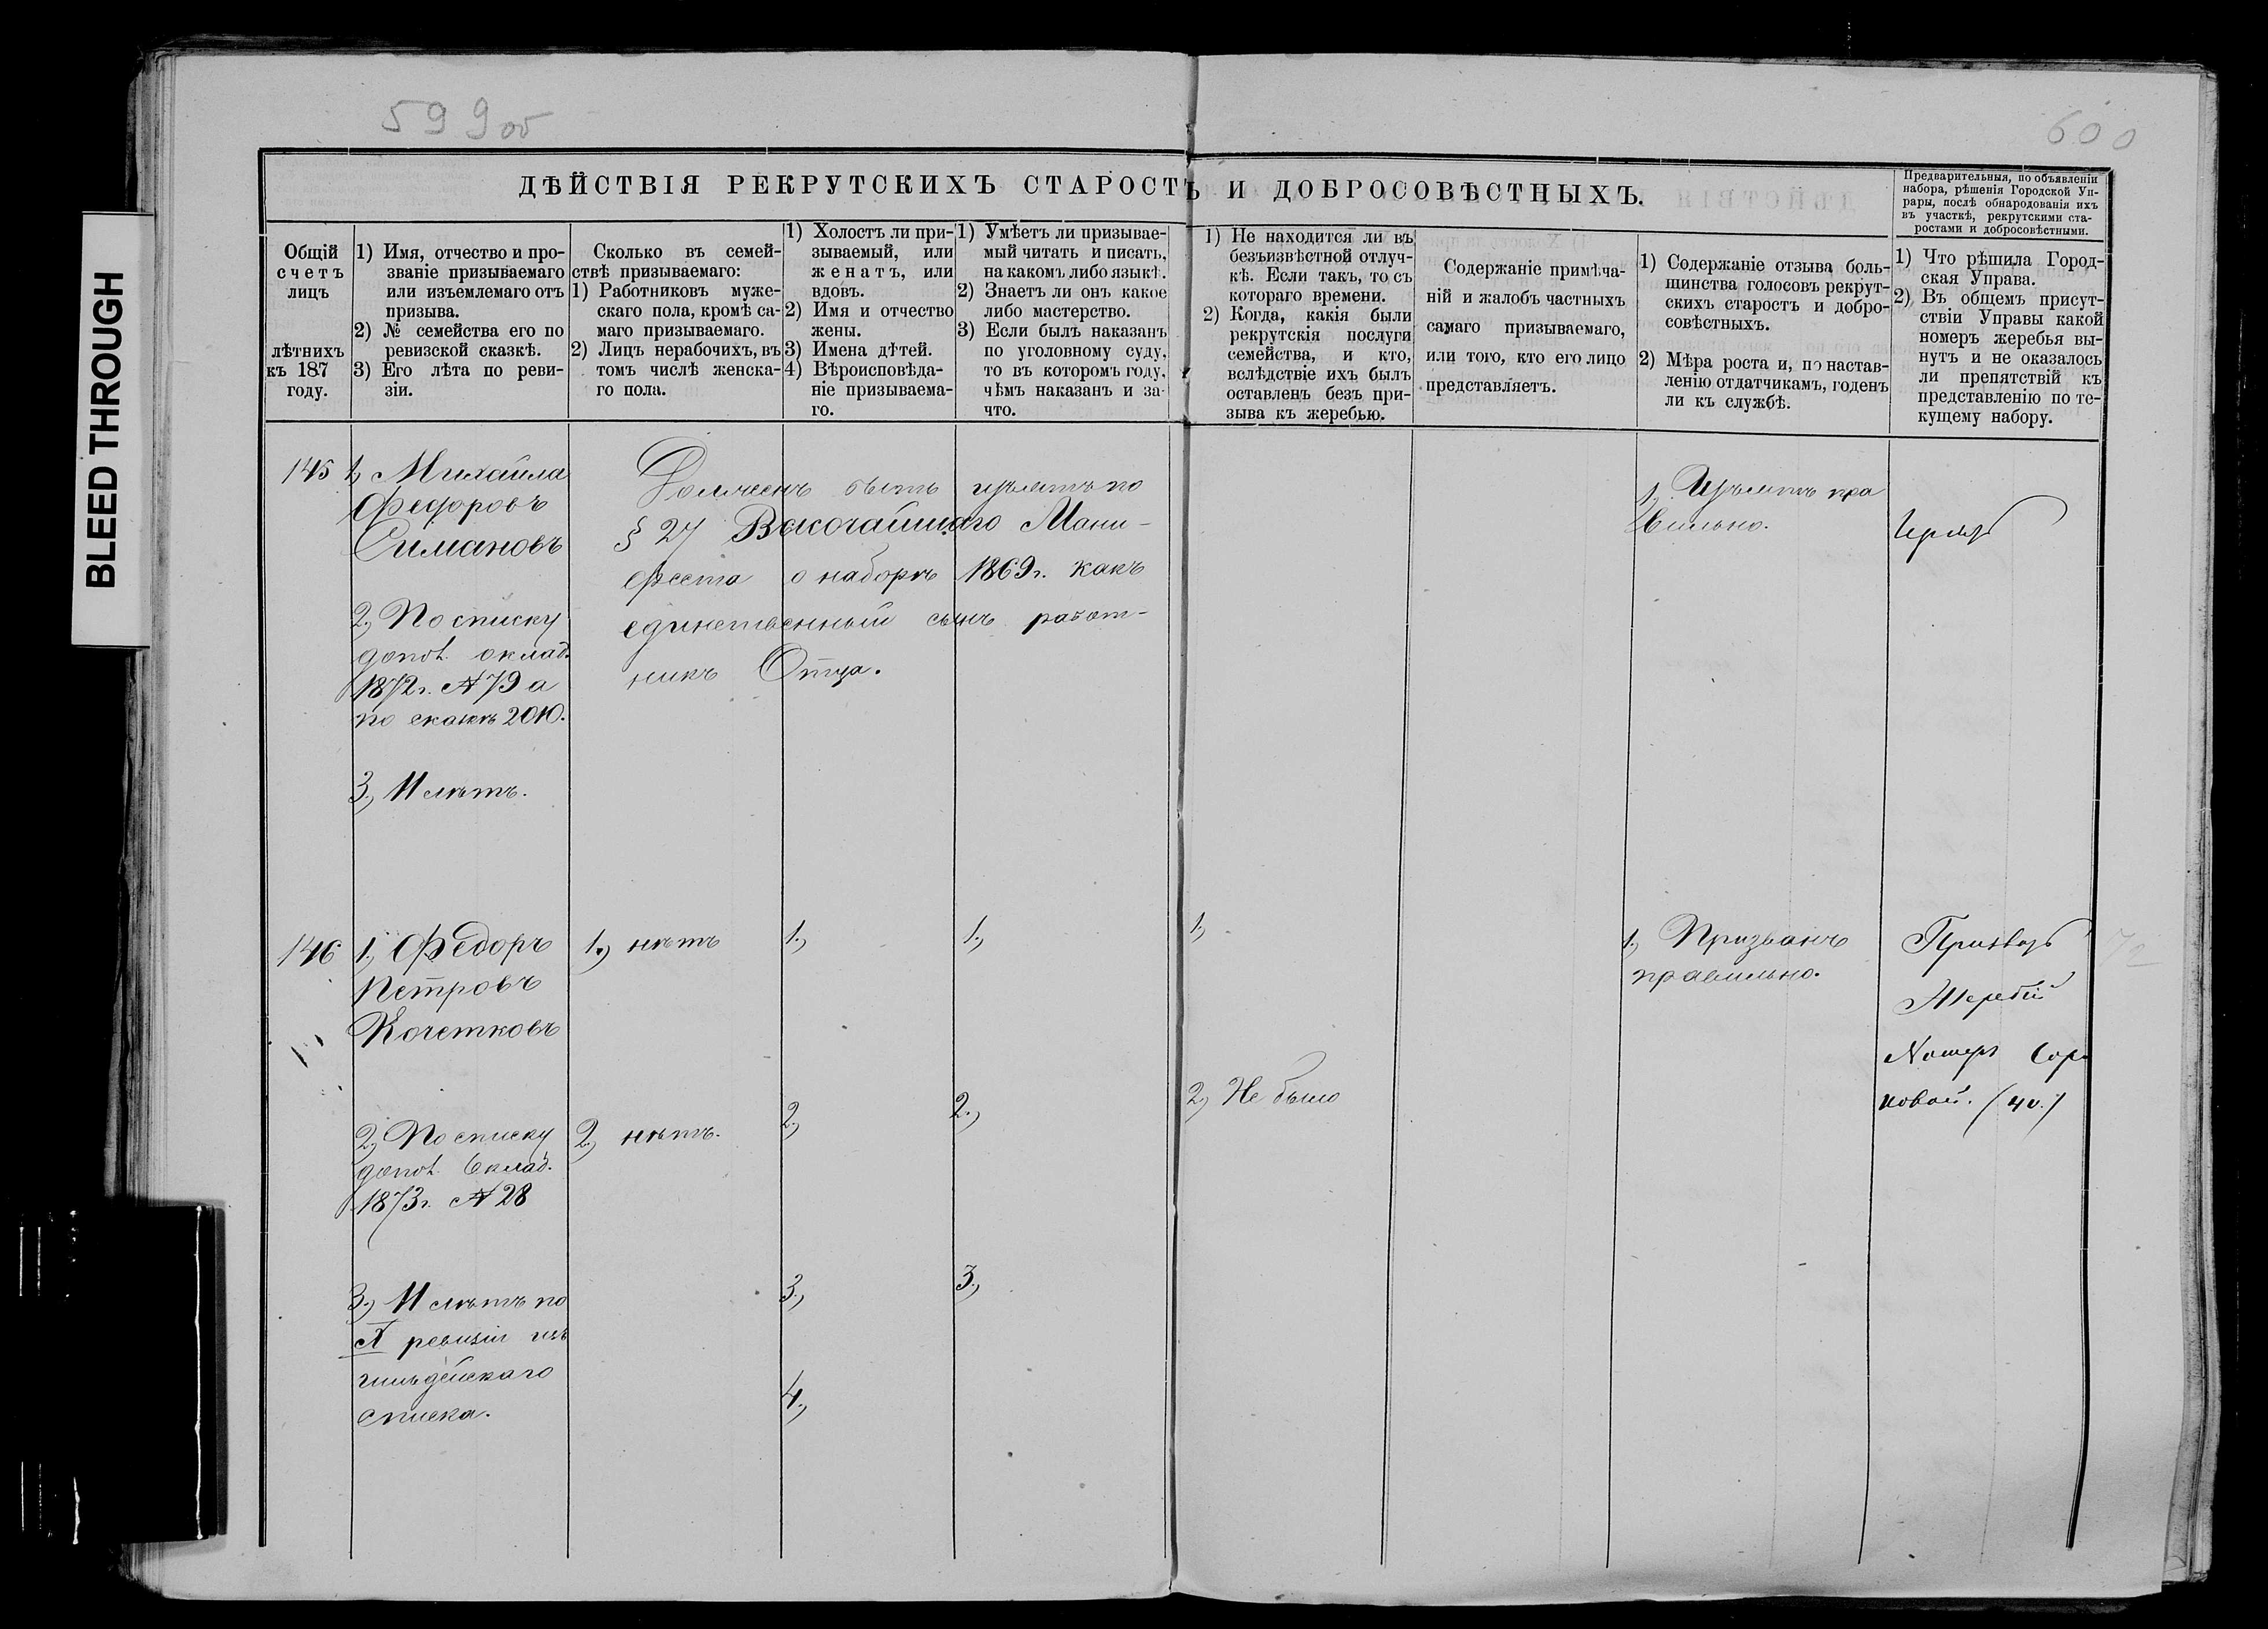 BLEED THROUGH
599 об
600
ДѢЙСТВІЯ РЕКРУТСКИХЪ СТАРОСТЪ И ДОБРОСОВѢСТНЫХЪ.
Предварительныя, по объявленіи
набора, рѣшенія Городской Уп-
рары, послѣ обнародованія ихъ
въ участкѣ, рекрутскими ста-
ростами и добросовѣстными.
Общій
счетъ
лицъ
лѣтнихъ
къ 187
году.
1) Имя, отчество и про-
званіе призываемаго
или изъемлемаго отъ
призыва.
2) № семейства его по
ревизской сказкѣ.
3) Его лѣта по реви-
зіи.
Сколько въ семей-
ствѣ призываемаго:
1) Работниковъ муже-
скаго пола, кромѣ са-
маго призываемаго.
2) Лицъ нерабочихъ, въ
томъ числѣ женска-
го пола.
1) Холостъ ли при-
зываемый, или
женатъ, или
вдовъ.
2) Имя и отчество
жены.
3) Имена дѣтей.
4) Вѣроисповѣда-
ніе призываема-
го.
1) Умѣетъ ли призывае-
мый читать и писать,
на какомъ либо языкѣ.
2) Знаетъ ли онъ какое
либо мастерство.
3) Если былъ наказанъ
по уголовному суду,
то въ которомъ году,
чѣмъ наказанъ и за-
что.
1) Не находится ли въ
безъизвѣстной отлуч-
кѣ. Если такъ, то съ
котораго времени.
2) Когда, какія были
рекрутскія послуги
семейства, и кто,
вслѣдствіе ихъ былъ
оставленъ безъ при-
зыва къ жеребью.
Содержаніе примѣча-
ній и жалобъ частныхъ
самаго призываемаго,
или того, кто его лицо
представляетъ.
1) Содержаніе отзыва боль-
шинства голосовъ рекрут-
скихъ старостъ и добро-
совѣстныхъ.
2) Мѣра роста и, по настав-
ленію отдатчикамъ, годенъ
ли къ службѣ.
1) Что рѣшила Город-
ская Управа.
2) Въ общемъ присут-
ствіи Управы какой
номеръ жеребья вы-
нутъ и не оказалось
ли препятствій къ
представленію по те-
кущему набору.
145
1, Михайла
Федоровъ
Симановъ
2, По списку
допол. оклад.
1872 г. № 79 а
по сказкѣ 2010.
3, И лѣтъ.
Долженъ быть изъятъ по
§ 27 Высочайшаго Мани-
феста о наборѣ 1869 г. какъ
единственный сынъ работ-
никъ Отца.
1, Изъятъ пра
вильно.
146
1, Федоръ
Петровъ
Кочетковъ
2, По списку
допол. Оклад.
1873 г. № 28
3, И лѣтъ по
X ревизіи изъ
гильдейскаго
списка.
1, нѣтъ
2, нѣтъ.
1,
2,
3,
4,
1,
2,
3,
1,
2, Не было
1, Призванъ
правильно.
Призвать
Жеребій
Номеръ Соро
ковой. (40.)